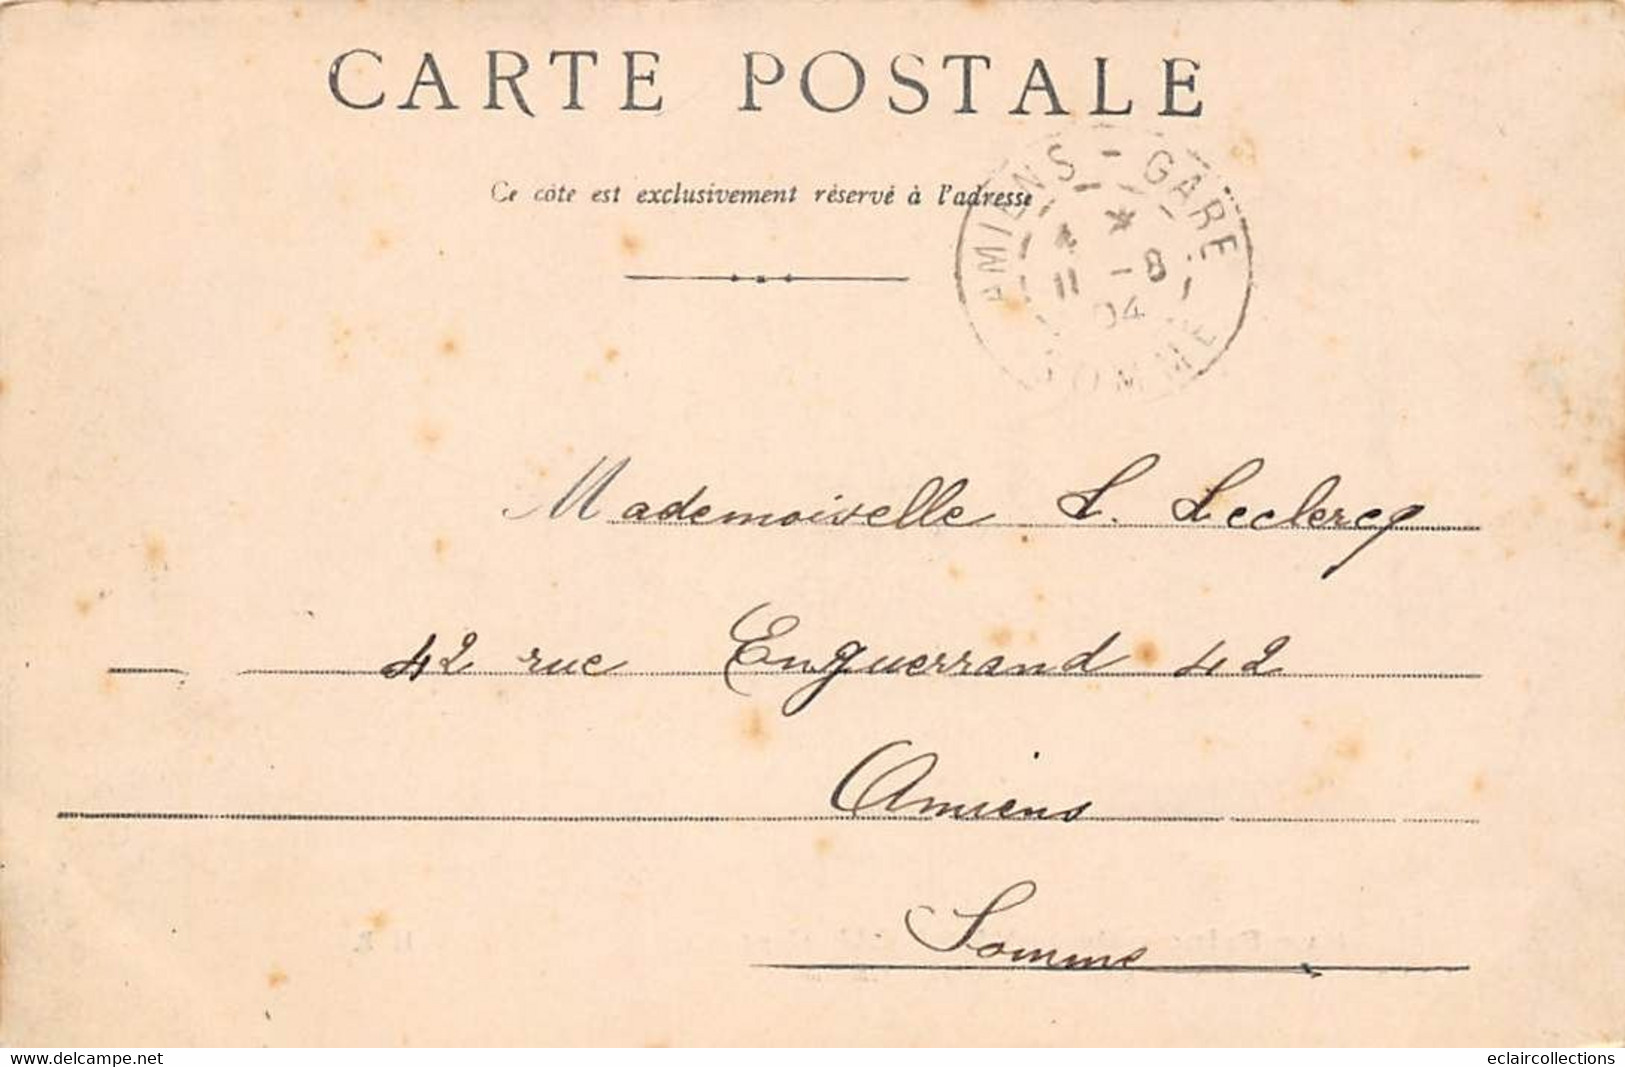 CARTE POSTALE
Ce côté est exclusivement réservé à l'adresse
AMIENS - GARE
4 *
11 - 8
04
SOMME
Mademoiselle L. Leclercq
42 rue Enguerrand 42
Amiens
Somme
www.delcampe.net
eclaircollections